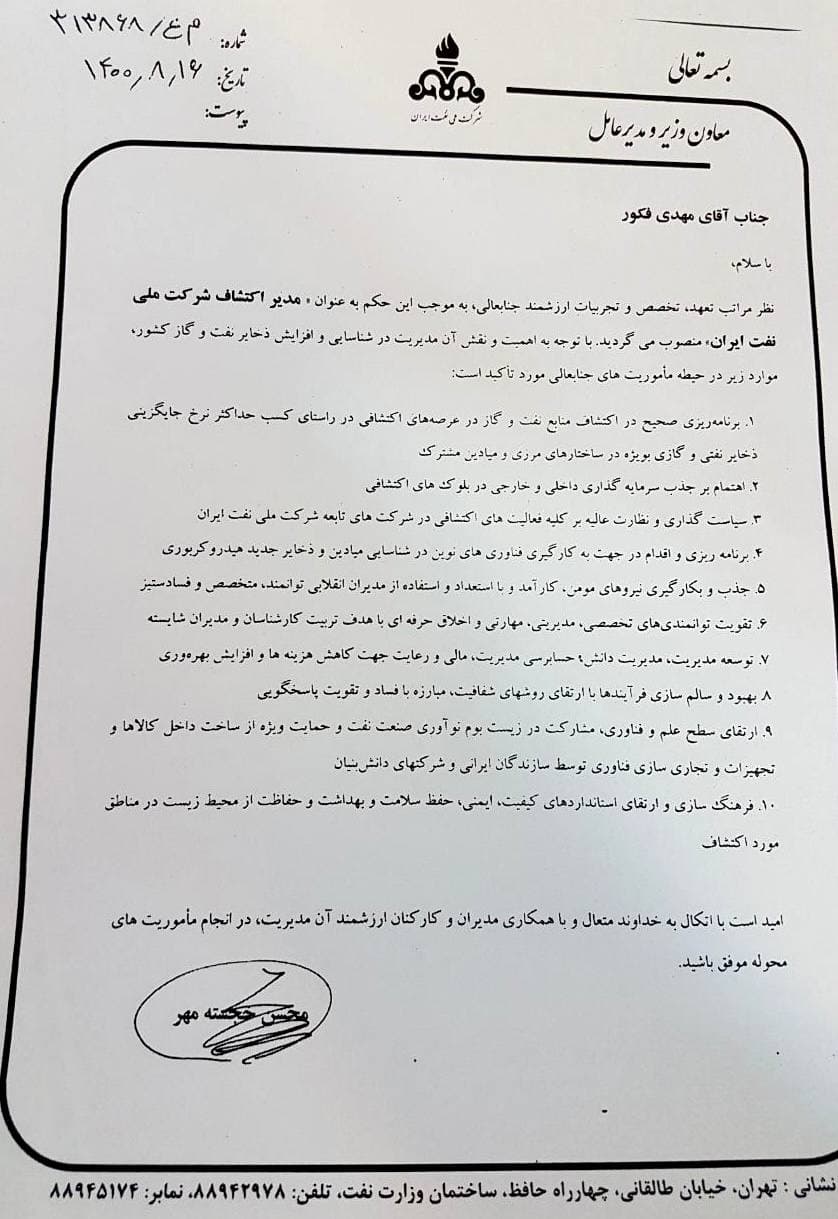 بسمه تعالی
معاون وزیر و مدیرعامل
شرکت ملی نفت ایران
شماره: م غ/ ۳۱۳۸۶۸
تاریخ: ۱۴۰۰/۸/۱۶
پیوست:
جناب آقای مهدی فکور
با سلام،
نظر مراتب تعهد، تخصص و تجربیات ارزشمند جنابعالی، به موجب این حکم به عنوان « مدیر اکتشاف شرکت ملی
نفت ایران» منصوب می گردید. با توجه به اهمیت و نقش آن مدیریت در شناسایی و افزایش ذخایر نفت و گاز کشور،
موارد زیر در حیطه مأموریت های جنابعالی مورد تأکید است:
۱. برنامه‌ریزی صحیح در اکتشاف منابع نفت و گاز در عرصه‌های اکتشافی در راستای کسب حداکثر نرخ جایگزینی
ذخایر نفتی و گازی بویژه در ساختارهای مرزی و میادین مشترک
۲. اهتمام بر جذب سرمایه گذاری داخلی و خارجی در بلوک های اکتشافی
۳. سیاست گذاری و نظارت عالیه بر کلیه فعالیت های اکتشافی در شرکت های تابعه شرکت ملی نفت ایران
۴. برنامه ریزی و اقدام در جهت به کارگیری فناوری های نوین در شناسایی میادین و ذخایر جدید هیدروکربوری
۵. جذب و بکارگیری نیروهای مومن، کارآمد و با استعداد و استفاده از مدیران انقلابی توانمند، متخصص و فسادستیز
۶. تقویت توانمندی‌های تخصصی، مدیریتی، مهارتی و اخلاق حرفه ای با هدف تربیت کارشناسان و مدیران شایسته
۷. توسعه مدیریت، مدیریت دانش؛ حسابرسی مدیریت، مالی و رعایت جهت کاهش هزینه ها و افزایش بهره‌وری
۸. بهبود و سالم سازی فرآیندها با ارتقای روشهای شفافیت، مبارزه با فساد و تقویت پاسخگویی
۹. ارتقای سطح علم و فناوری، مشارکت در زیست بوم نوآوری صنعت نفت و حمایت ویژه از ساخت داخل کالاها و
تجهیزات و تجاری سازی فناوری توسط سازندگان ایرانی و شرکتهای دانش‌بنیان
۱۰. فرهنگ سازی و ارتقای استانداردهای کیفیت، ایمنی، حفظ سلامت و بهداشت و حفاظت از محیط زیست در مناطق
مورد اکتشاف
امید است با اتکال به خداوند متعال و با همکاری مدیران و کارکنان ارزشمند آن مدیریت، در انجام مأموریت های
محوله موفق باشید.
محسن خجسته مهر
نشانی : تهران، خیابان طالقانی، چهارراه حافظ، ساختمان وزارت نفت، تلفن: ۸۸۹۴۲۹۷۸، نمابر: ۸۸۹۴۵۱۷۴